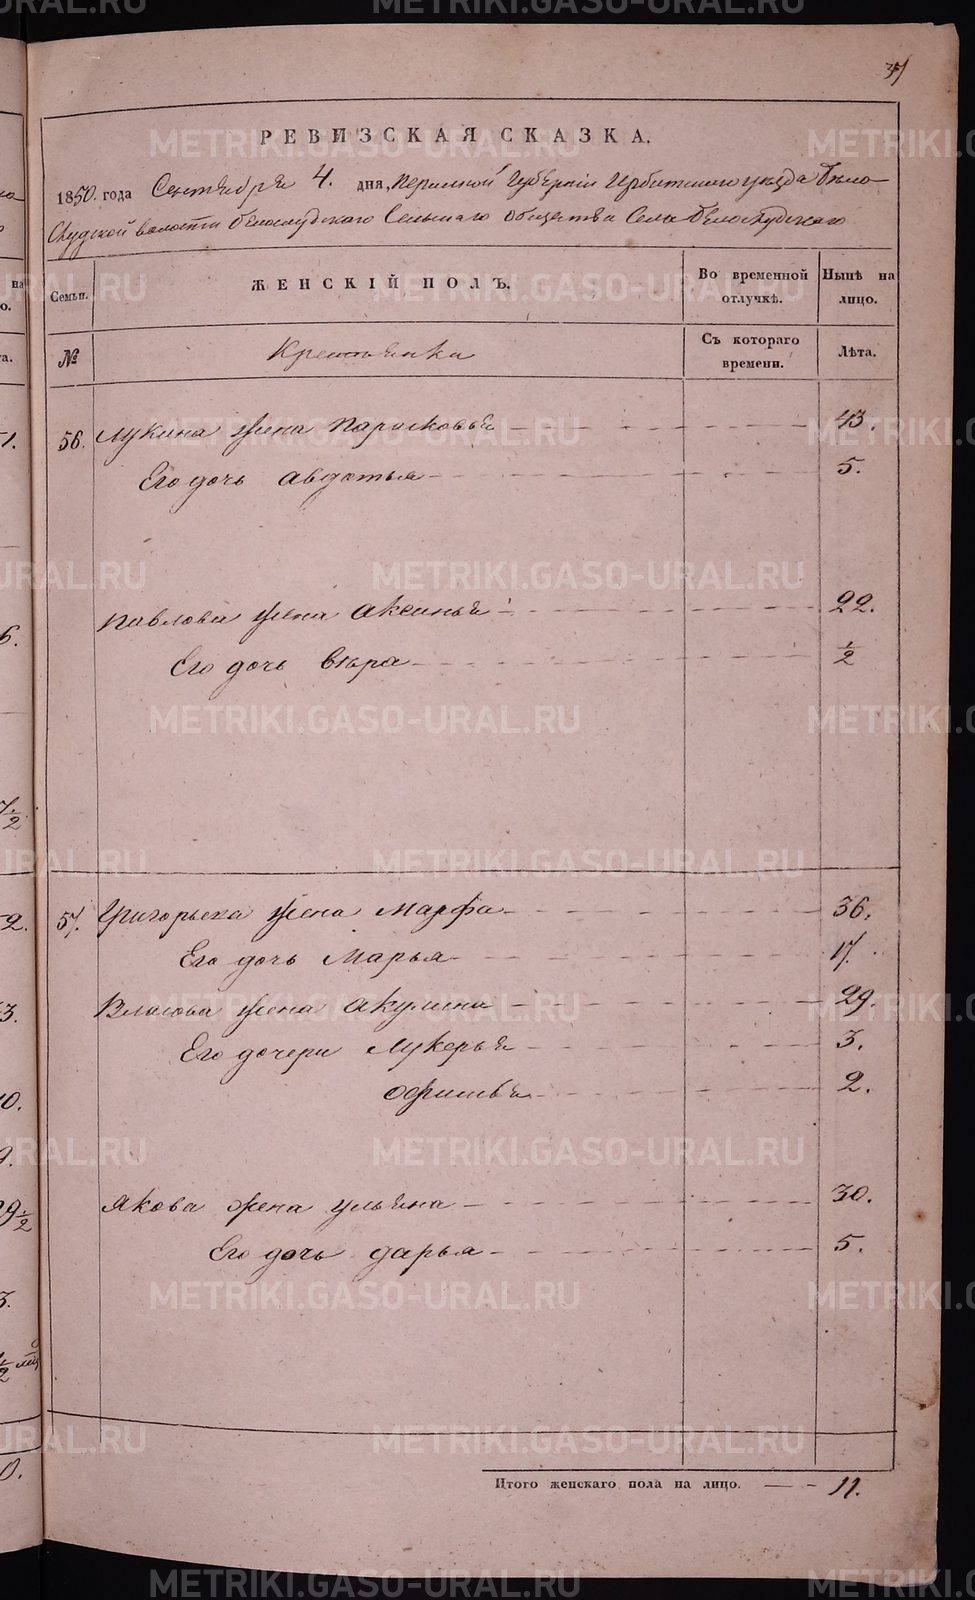 37
РЕВИЗСКАЯ СКАЗКА.
1850. года Сентября 4. дня, Пермской Губернiи Ирбитскаго уѣзда Бѣло-
слудской волости Белослудского Сельскаго общества Села Белослудскаго
Семьи. ЖЕНСКІЙ ПОЛЪ. Во временной отлучкѣ. Нынѣ на лицо.
№ Крестьянки Съ котораго времени. Лѣта.
56. Лукина жена Парасковья 43.
Его дочь Авдотья 5.
Павлова жена Аксинья 22.
Его дочь Вѣра ½
57. Григорьева жена Марфа 36.
Его дочь Марья 17.
Власова жена Акулина 29.
Его дочери Лукерья 3.
Офимья 2.
Якова жена Ульяна 30.
Его дочь Дарья 5.
Итого женскаго пола на лицо. 11.
METRIKI.GASO-URAL.RU